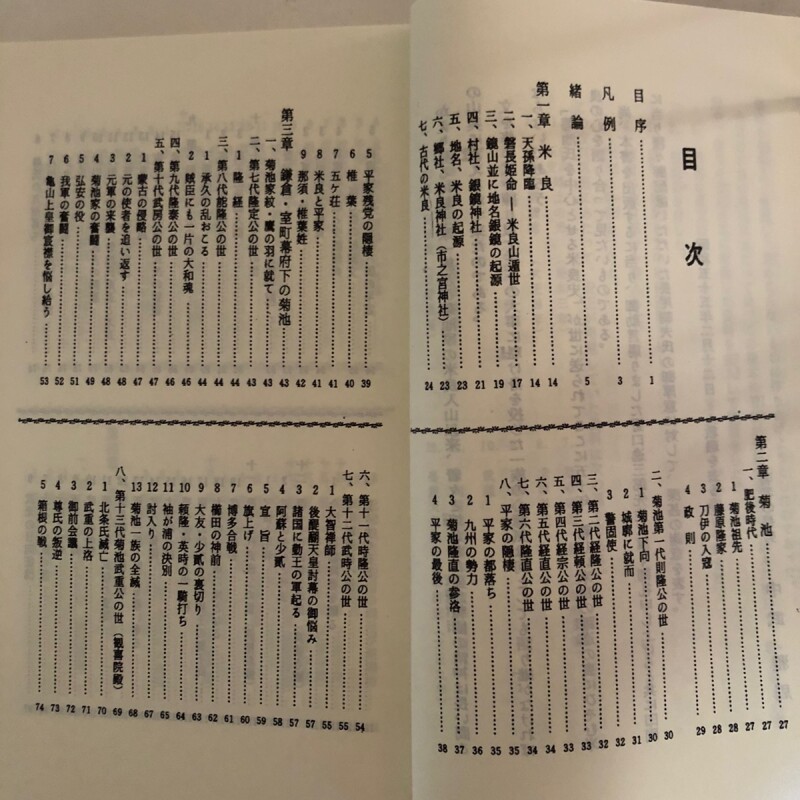 目次
目序 1
凡例 3
緒論 5
第一章 米良 14
一、天孫降臨 14
二、磐長姫命―米良山遁世 17
三、鏡山並に地名銀鏡の起源 19
四、村社、銀鏡神社 21
五、地名、米良の起源 23
六、郷社、米良神社(市之宮神社) 23
七、古代の米良 24
第二章 菊池 27
一、肥後時代 27
1 菊池祖先 27
2 藤原隆家 28
3 刀伊の入寇 28
4 政則 29
二、菊池第一代則隆公の世 30
1 菊池下向 30
2 城廓に就而 31
3 警固使 32
三、第二代経隆公の世 32
四、第三代経頼公の世 33
五、第四代経宗公の世 33
六、第五代経直公の世 34
七、第六代隆直公の世 34
八、平家の隠棲 35
1 平家の都落ち 35
2 九州の勢力 36
3 菊池隆直の参洛 37
4 平家の最後 38
5 平家残党の隠棲 39
6 椎葉 40
7 五ケ荘 41
8 米良と平家 41
9 那須・椎葉姓 42
第三章 鎌倉・室町幕府下の菊池 43
一、菊池家紋・鷹の羽に就て 43
二、第七代隆定公の世 43
1 隆経 44
三、第八代能隆公の世 44
1 承久の乱おこる 44
2 賊臣にも一片の大和魂 46
四、第九代隆泰公の世 46
五、第十代武房公の世 47
1 蒙古の侵略 47
2 元の使者を追い返す 48
3 元軍の来襲 48
4 菊池家の奮闘 49
5 弘安の役 51
6 我軍の奮闘 52
7 亀山上皇御宸襟を悩し給う 53
六、第十一代時隆公の世 54
七、第十二代武時公の世 55
1 大智禅師 55
2 後醍醐天皇討幕の御悩み 57
3 諸国に勤王の軍起る 57
4 阿蘇と少貳 58
5 宣旨 59
6 旗上げ 60
7 博多合戦 61
8 櫛田の神前 62
9 大友・少貳の裏切り 63
10 頼隆・英時の一騎打ち 64
11 袖が浦の決別 65
12 討入り 67
13 菊池一族の全滅 68
八、第十三代菊池武重公の世(観喜院殿) 69
1 北条氏滅亡 70
2 武重の上洛 71
3 御前会議 72
4 尊氏の叛逆 73
5 箱根の戦 74